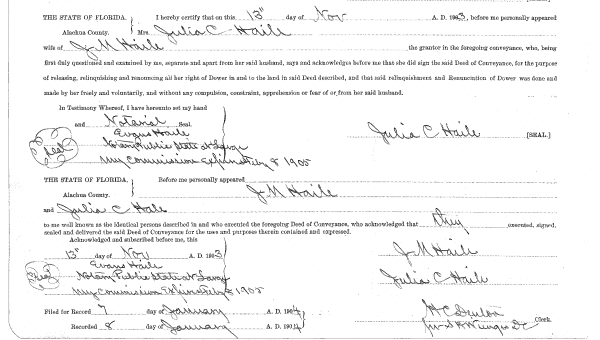 THE STATE OF FLORIDA. I hereby certify that on this 13" day of Nov A. D. 1903, before me personally appeared
Alachua County. Mrs. Julia C Haile
wife of J M Haile the grantor in the foregoing conveyance, who, being
first duly questioned and examined by me, separate and apart from her said husband, says and acknowledges before me that she did sign the said Deed of Conveyance, for the purpose
of releasing, relinquishing and renouncing all her right of Dower in and to the land in said Deed described, and that said relinquishment and Renunciation of Dower was done and
made by her freely and voluntarily, and without any compulsion, constraint, apprehension or fear of or from her said husband.
In Testimony Whereof, I have hereunto set my hand
and Notarial Seal.
Evans Haile
Julia C Haile [SEAL.]
Seal Notary Public State at Large
My Commission Expires 8 1905
THE STATE OF FLORIDA. Before me personally appeared
Alachua County. J M Haile
and Julia C Hale
to me well known as the identical persons described in and who executed the foregoing Deed of Conveyance, who acknowledged that they executed, signed,
sealed and delivered the said Deed of Conveyance for the uses and purposes therein contained and expressed.
Acknowledged and subscribed before me, this
13" day of Nov A. D. 1903 J M Haile
Evans Haile
Seal Notary Public State at Large Julia C Haile
My Commission Expires 8 1905
Filed for Record 7 day of January A. D. 1904 H C Denton
Clerk.
Recorded 8 day of January A. D. 1904